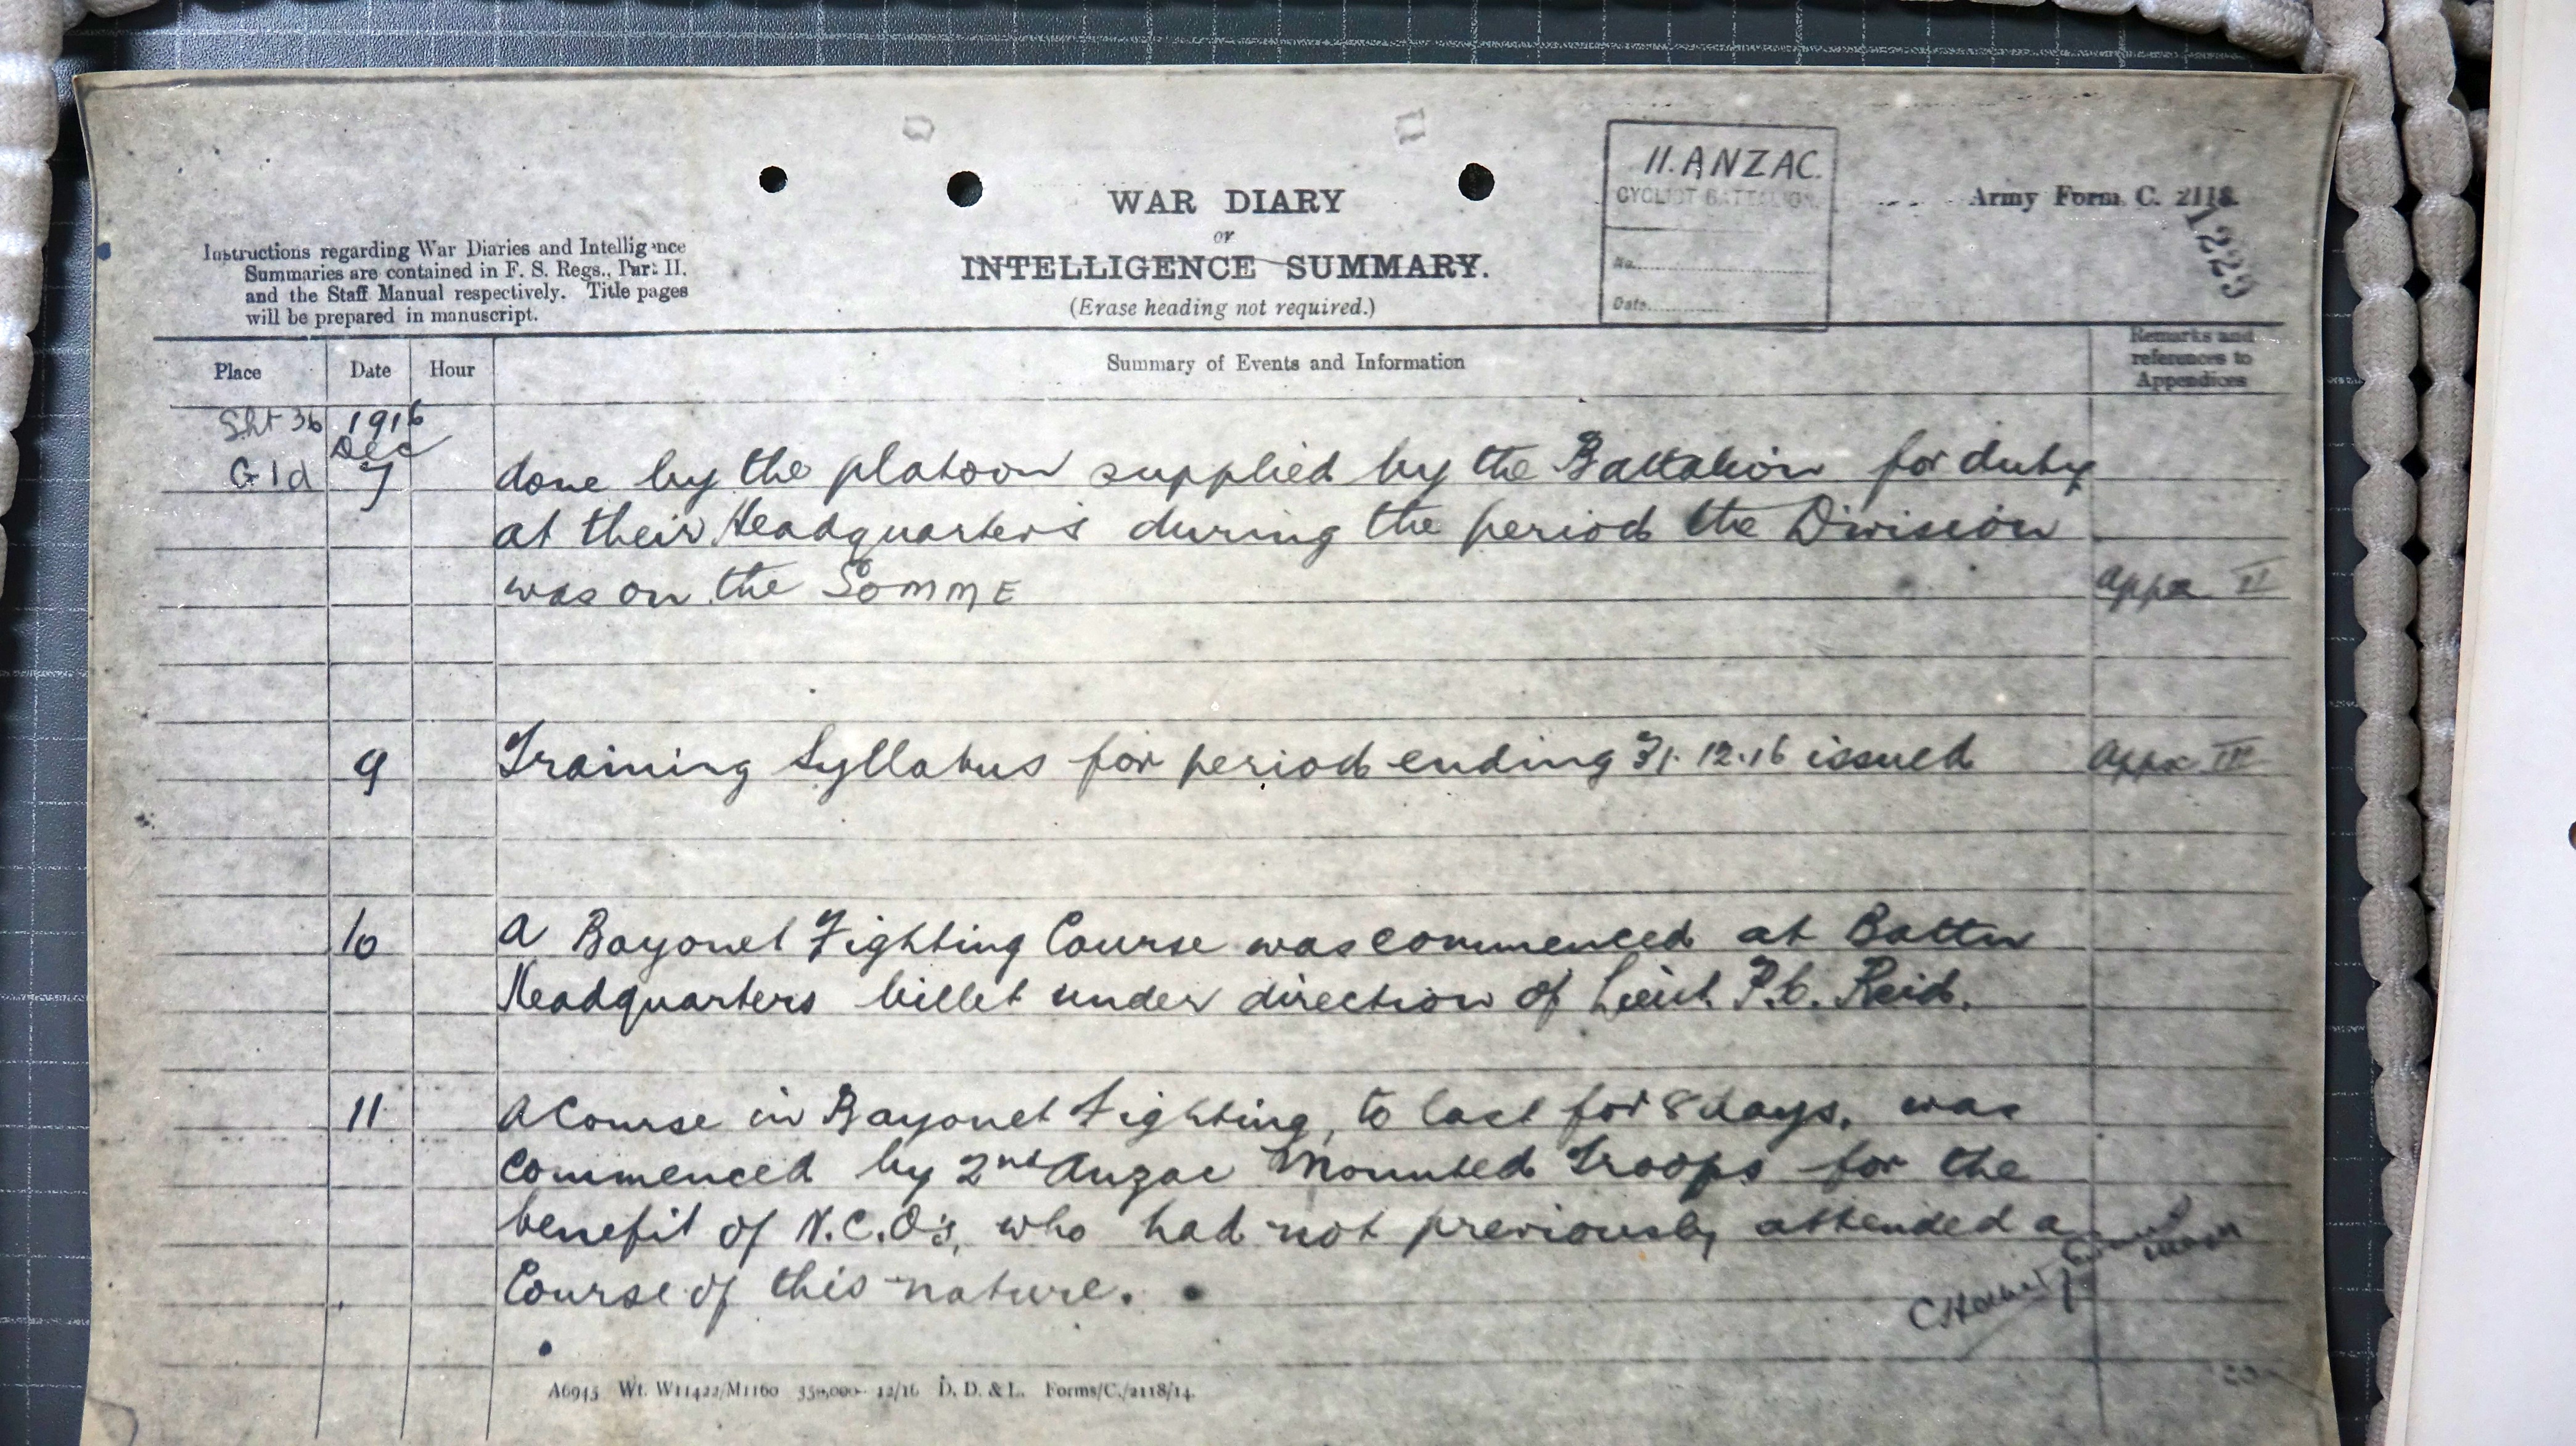 11. ANZAC.
CYCLIST BATTALION.
No.
Date
WAR DIARY
or
INTELLIGENCE SUMMARY.
(Erase heading not required.)
Army Form C. 2118.
Instructions regarding War Diaries and Intelligence
Summaries are contained in F. S. Regs., Part II.
and the Staff Manual respectively. Title pages
will be prepared in manuscript.
Place Date Hour Summary of Events and Information Remarks and
references to
Appendices
Sht 36 1916
Dec
G1d 7 done by the platoon supplied by the Battalion for duty
at their Headquarters during the period the Division
was on the SOMME Appx II
9 Training Syllabus for period ending 31.12.16 issued Appx
10 A Bayonet Fighting Course was commenced at Battn
Headquarters billet under direction of Lieut. P.C. Reid.
11 A Course in Bayonet Fighting, to last for 8 days, was
commenced by 2nd Anzac Mounted Troops for the
benefit of N.C.O's, who had not previously attended a
Course of this nature.
A6945 Wt. W11422/M1160 350,000 12/16 D. D. & L. Forms/C./2118/14.